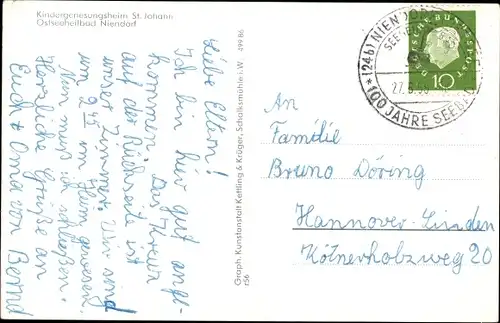 Kindergenesungsheim St. Johann
Ostseeheilbad Niendorf
Liebe Eltern!
Ich bin hier gut ange-
kommen. Das Kreuz
auf der Rückseite ist
unser Zimmer. Wir sind
um 9 45 im Heim gewesen.
Nun muß ich schließen.
Herzliche Grüße an
Euch + Oma von Bernd
Graph. Kunstanstalt Kettling & Krüger, Schalksmühle i.W. 499 86
f56
(24b) NIENDORF
SEEBAD
27.5.
100 JAHRE SEEBAD
DEUTSCHE BUNDESPOST
10
An
Familie
Bruno Döring
Hannover-Linden
Kötnerholzweg 20